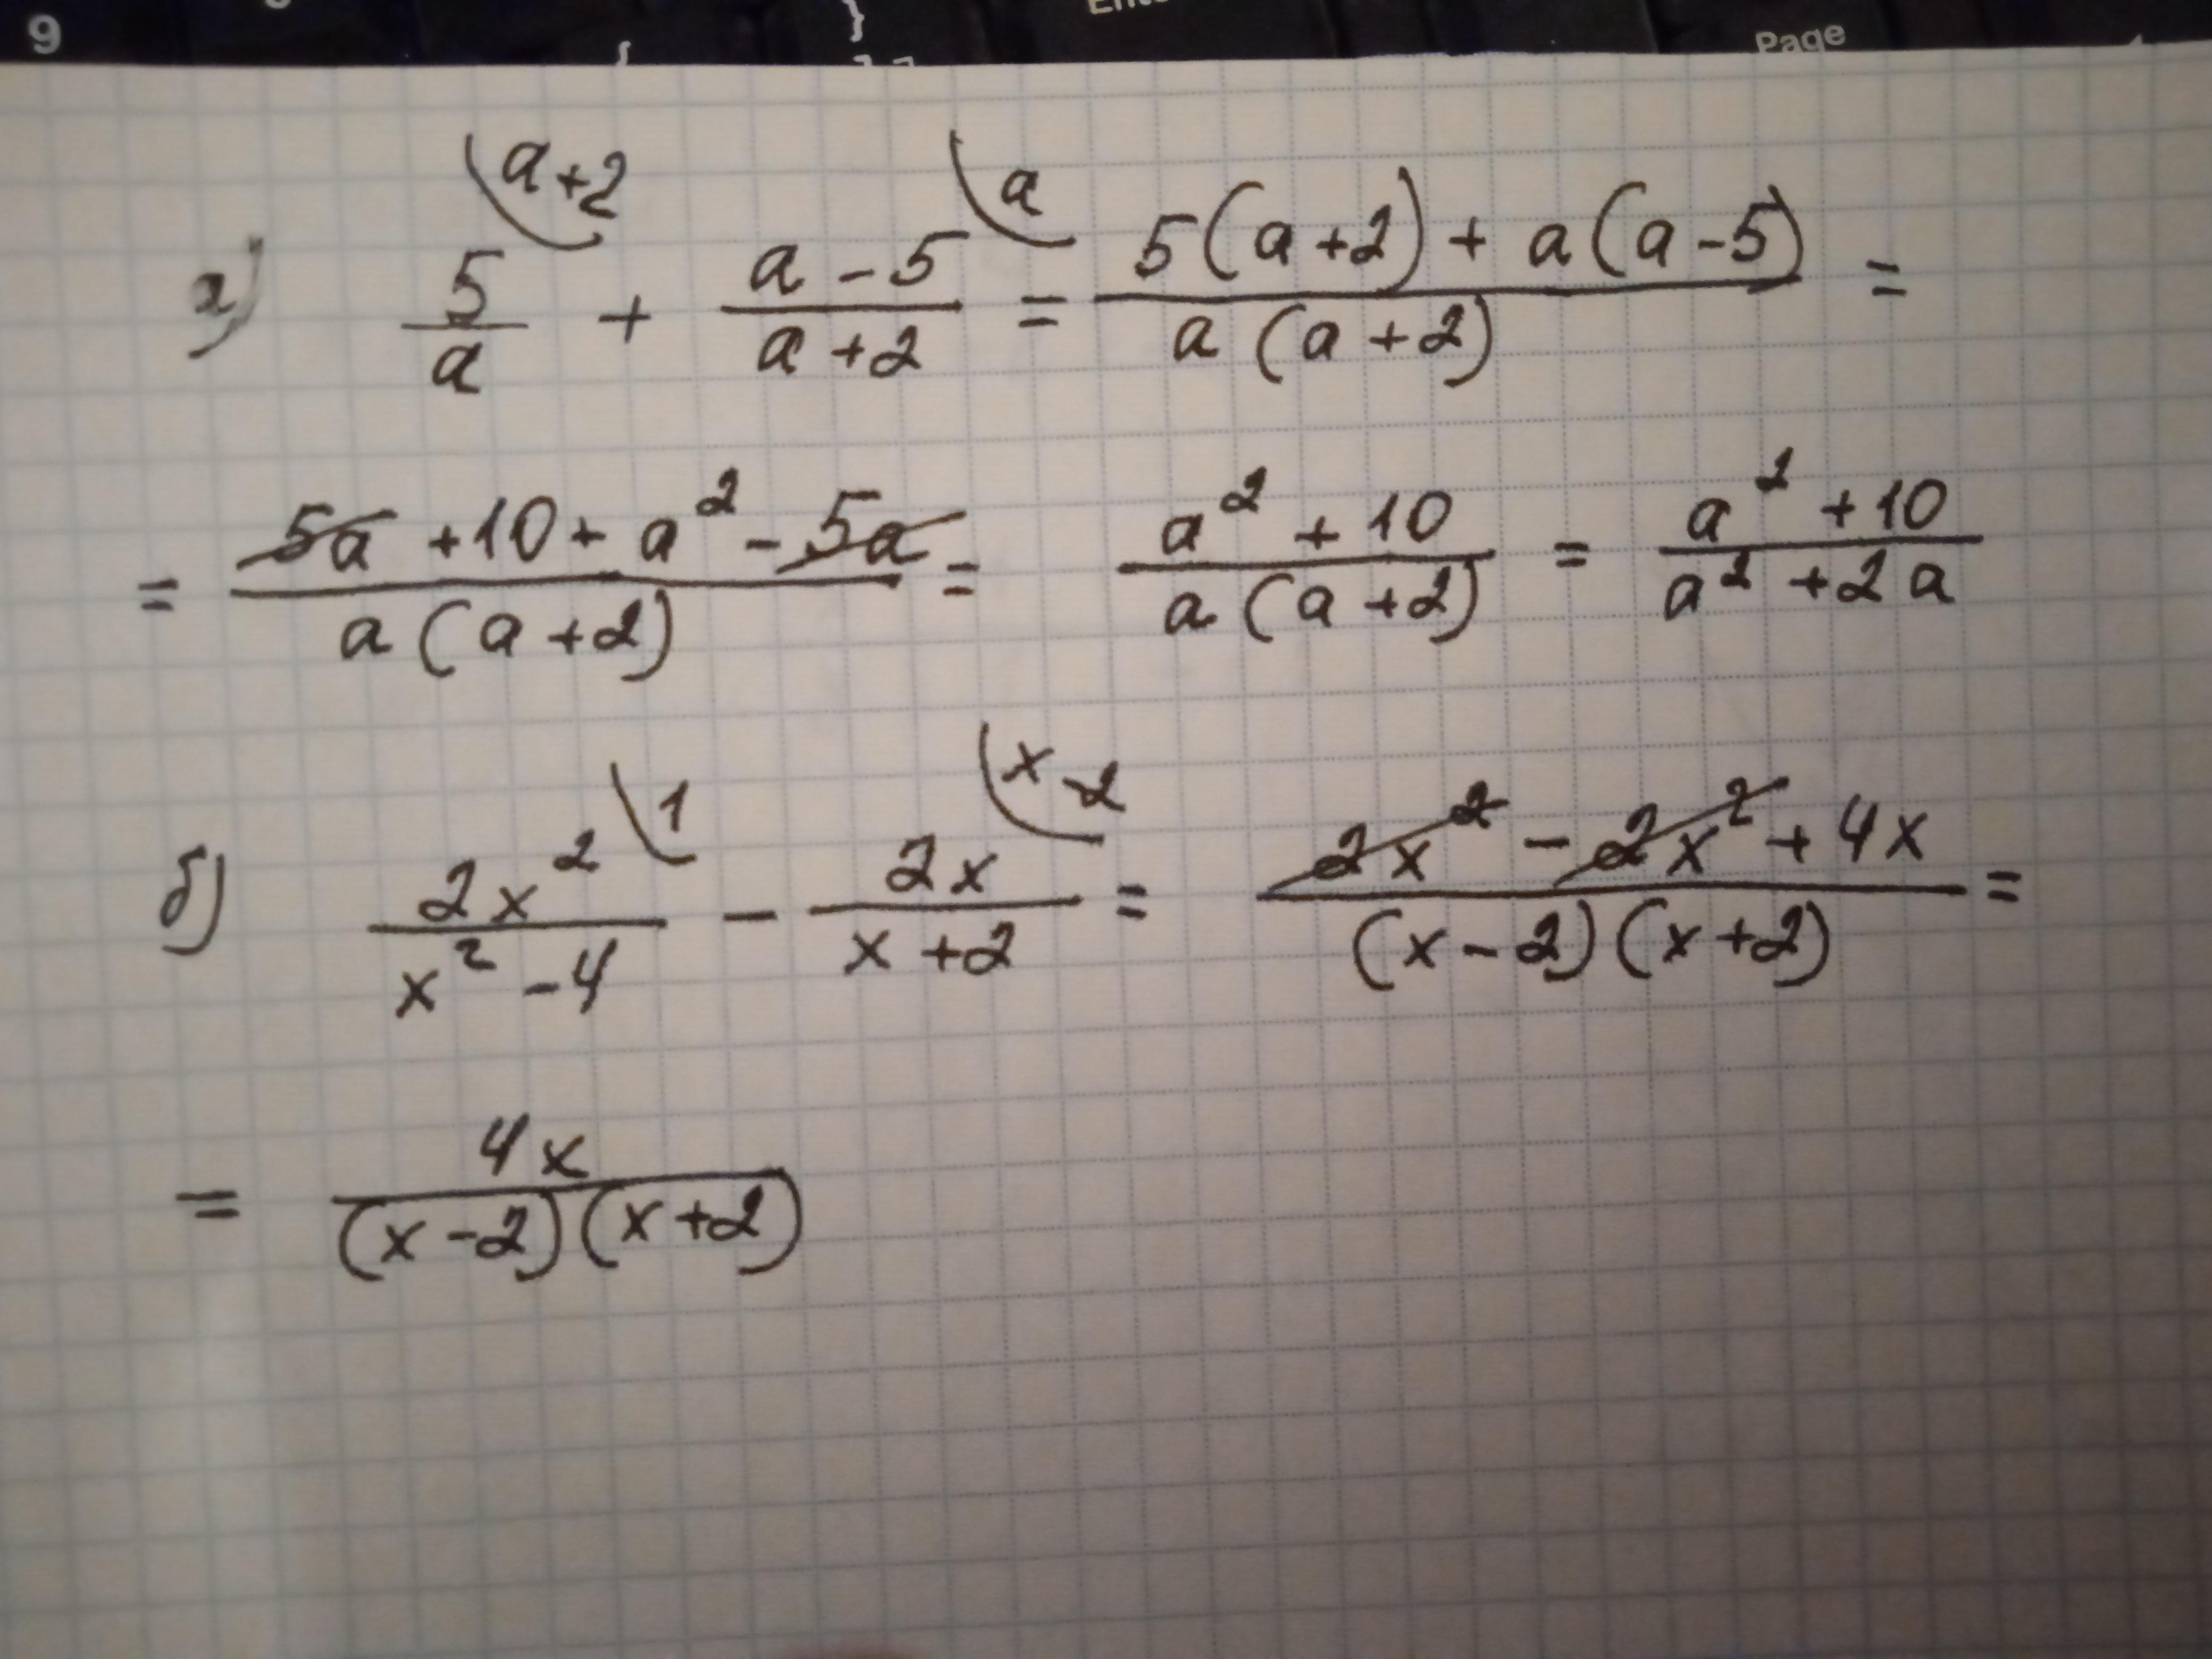 9 } Ente Page
{
а) 5/a \a+2 + (a-5)/(a+2) \a = (5(a+2)+a(a-5))/(a(a+2)) =
= (5a+10+a²-5a)/(a(a+2)) = (a²+10)/(a(a+2)) = (a²+10)/(a²+2a)
б) 2x²/(x²-4) \1 - 2x/(x+2) \x-2 = (2x²-2x²+4x)/((x-2)(x+2)) =
= 4x/((x-2)(x+2))